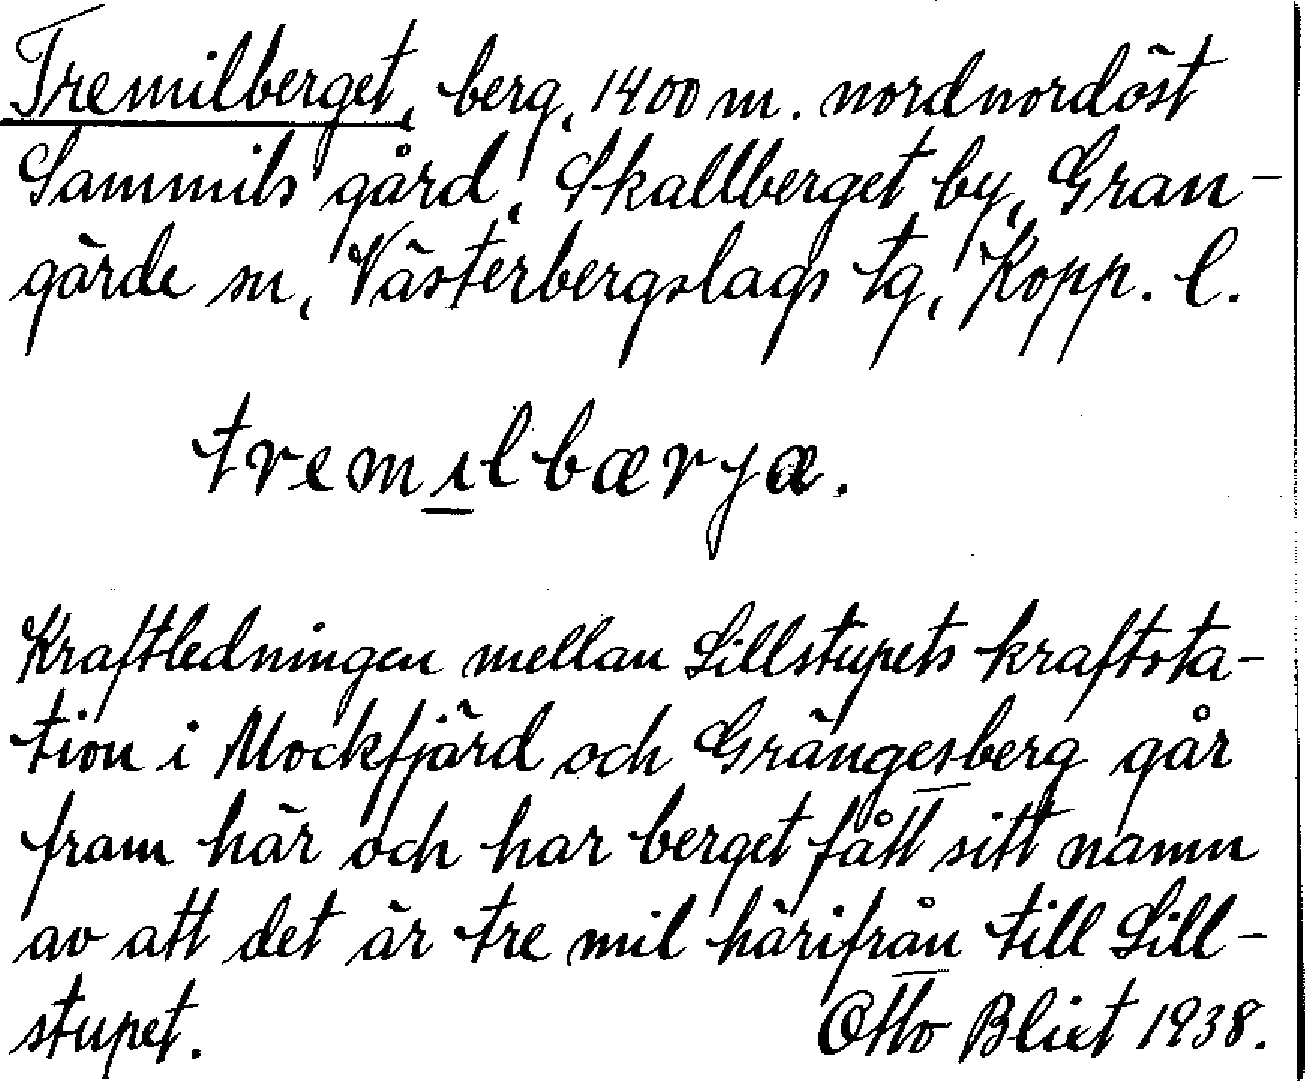 Tremilberget, berg, 1400 m. nordnordöst
Sammils gård, Skallberget by, Gran-
gärde sn, Västerbergslags tg, Kopp. l.
tremilbærjæ.
Kraftledningen mellan Lillstupets kraftsta-
tion i Mockfjärd och Grängesberg går
fram här och har berget fått sitt namn
av att det är tre mil härifrån till Lill-
stupet. Otto Blixt 1938.